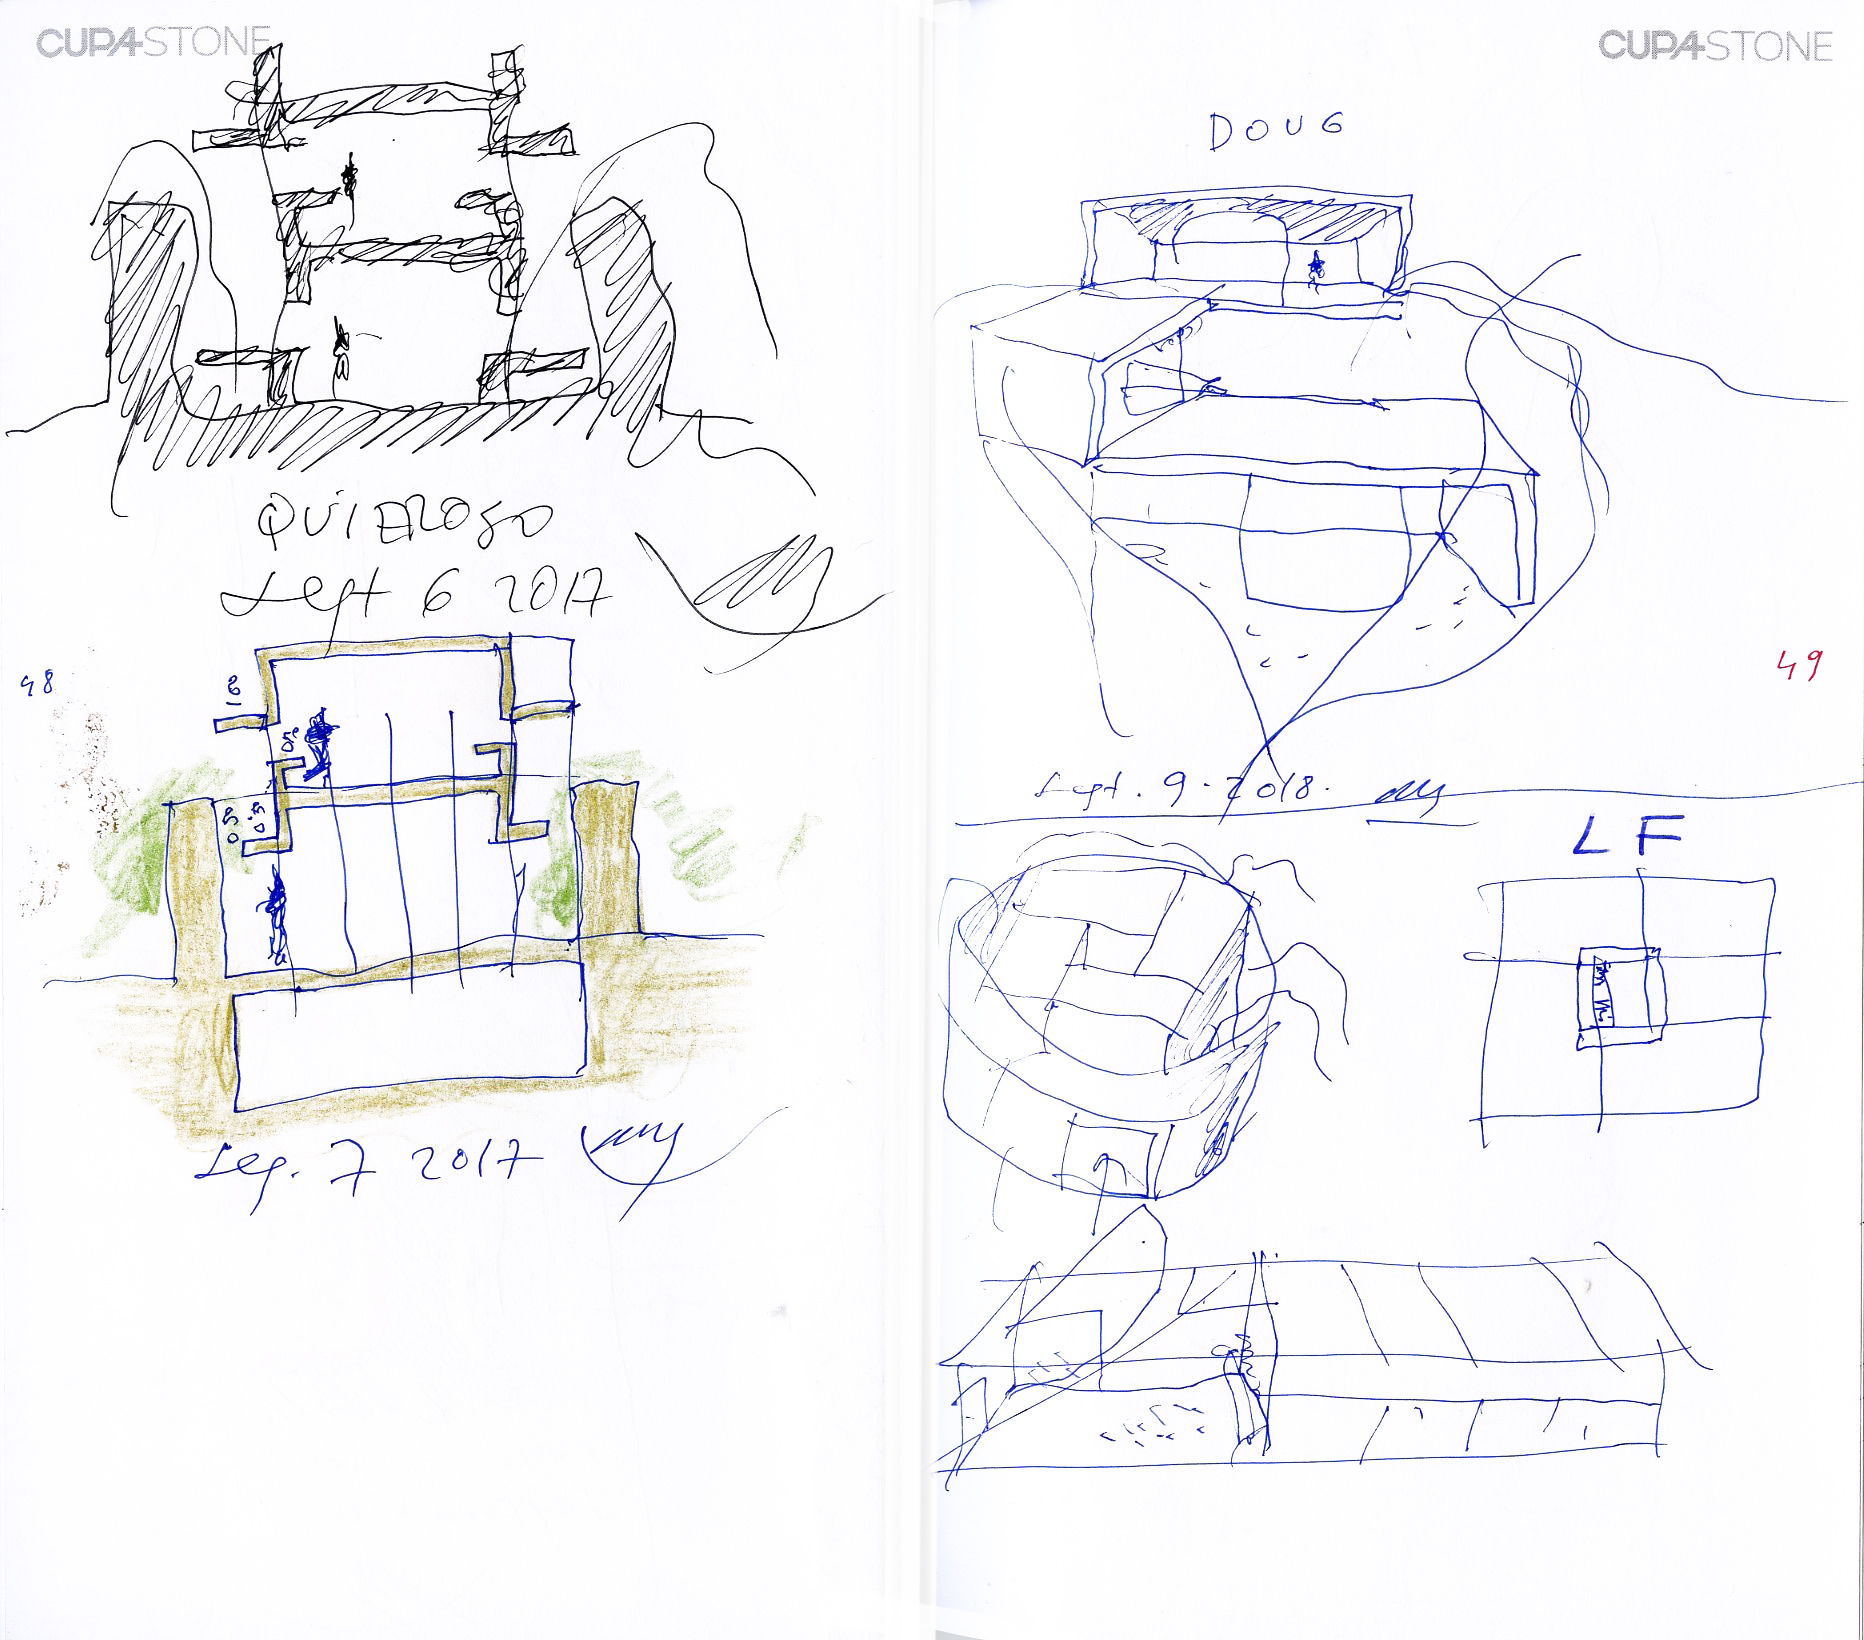 CUPA STONE
QUIEROSO
Sept 6 2017
48
1.6
0.50
0.50
0.50
Sep. 7 2017
CUPA STONE
DOUG
49
Sept. 9. 2018.
LF